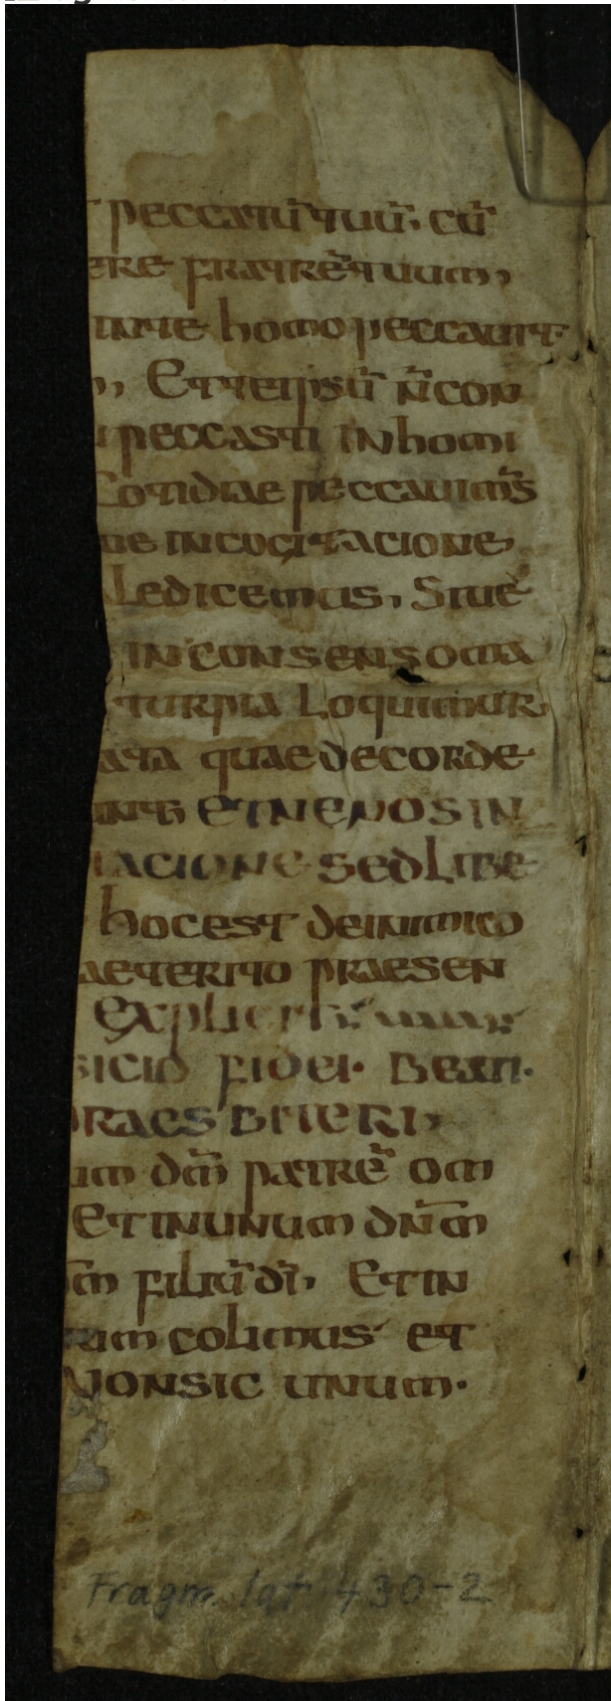 peccatū tuū. cū
ere fratrē tuum,
in te homo peccauit
,, Et te ipsū n̄ con
peccasti in homi
Cotidiae peccauim̄s
ne in cogitacione
ledicemus, Siue
in consensoma
turpia loquimur
ata quae de corde
int͞ et ne nos in
tacione sed libe
hoc est de inimico
aeterito praesen
explicit
sicio fidei. Beati.
braes
um dm̄ patrē om
Et in unum dnm̄
m̄ filiū dī, Et in
tum colimus et
Non sic unum.
Fragm. lat 430-2